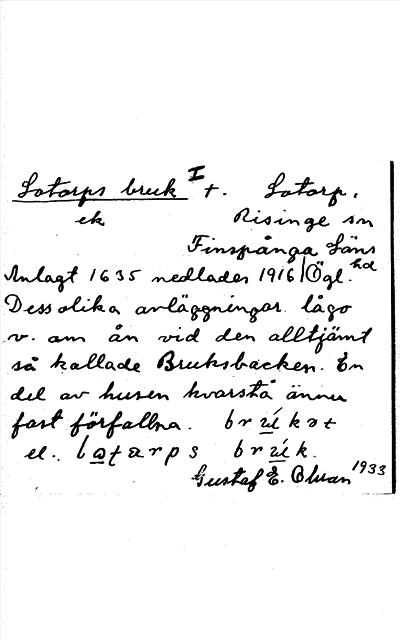 Lotorps bruk I †. Lotorp.
ek Risinge sn
Finspånga Läns
hd
Anlagt 1635 nedlades 1916 Ögl.
Dess olika anläggningar lågo
v. om ån vid den alltjämt
så kallade Bruksbacken. En
del av husen kvarstå ännu
fast förfallna. brúkət
el. lotarps brúk.
Gustaf E. 1933